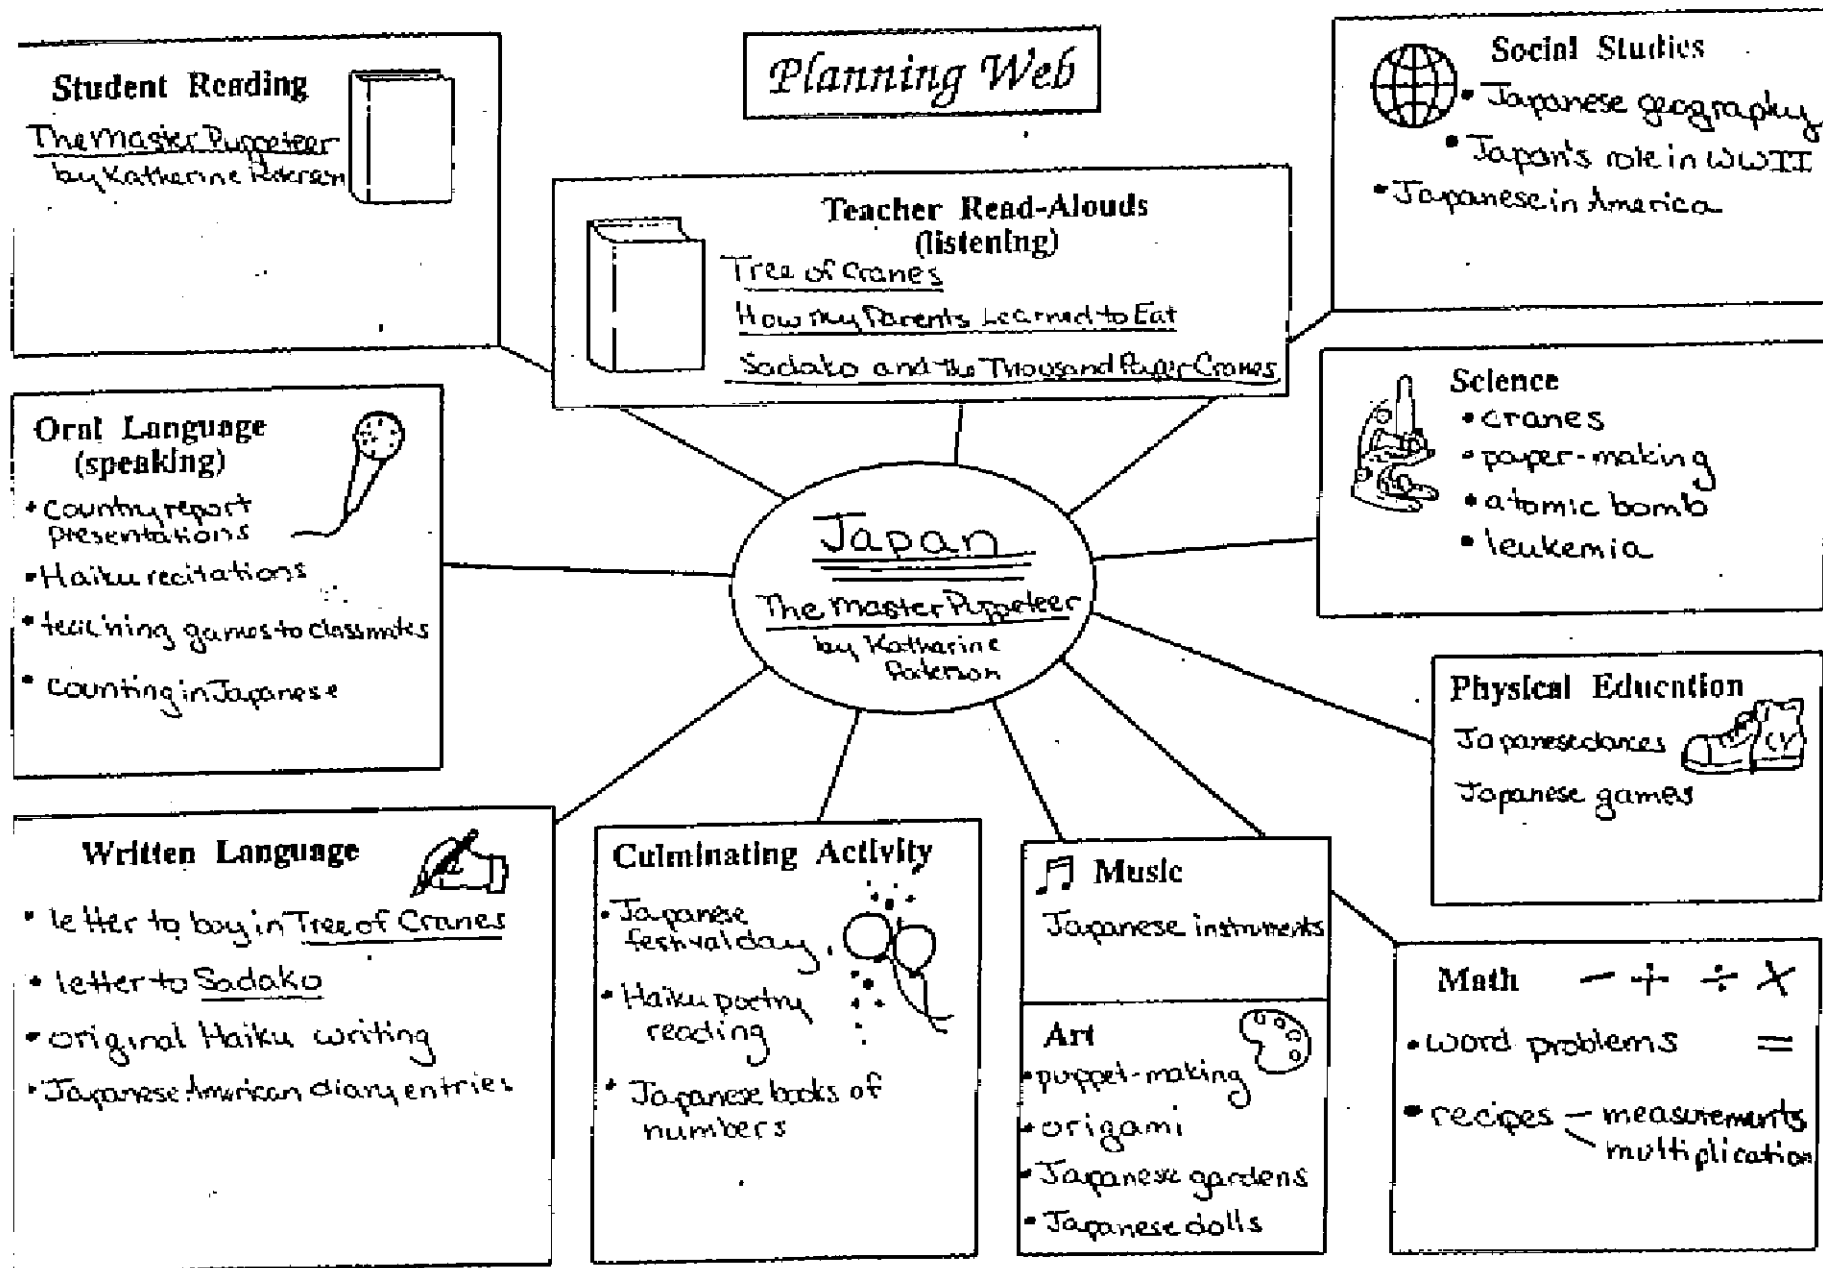 Planning Web
Student Reading
The Master Puppeteer
by Katherine Paterson
Teacher Read-Alouds
(listening)
Tree of Cranes
How My Parents Learned to Eat
Sadako and the Thousand Paper Cranes
Social Studies
• Japanese geography
• Japan's role in WWII
• Japanese in America
Oral Language
(speaking)
• Country report
presentations
• Haiku recitations
• teaching games to classmates
• counting in Japanese
Japan
The Master Puppeteer
by Katharine
Paterson
Science
• cranes
• paper-making
• atomic bomb
• leukemia
Physical Education
Japanese dances
Japanese games
Written Language
• letter to boy in Tree of Cranes
• letter to Sadako
• original Haiku writing
• Japanese American diary entries
Culminating Activity
• Japanese
festival day
• Haiku poetry
reading
• Japanese books of
numbers
Music
Japanese instruments
Art
• puppet-making
• origami
• Japanese gardens
• Japanese dolls
Math − + ÷ ×
=
• word problems
• recipes — measurements
multiplication